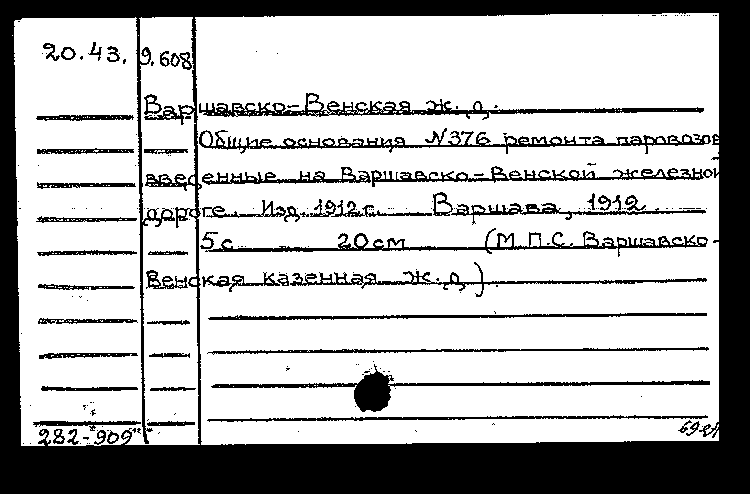 20.43. 9.608
Варшавско-Венская ж. д.
Общие основания №376 ремонта паровозов
введенные на Варшавско-Венской железной
дороге. Изд. 1912 г. Варшава, 1912.
5 с 20 см (М.П.С. Варшавско-
Венская казенная ж.д)
282-"909"